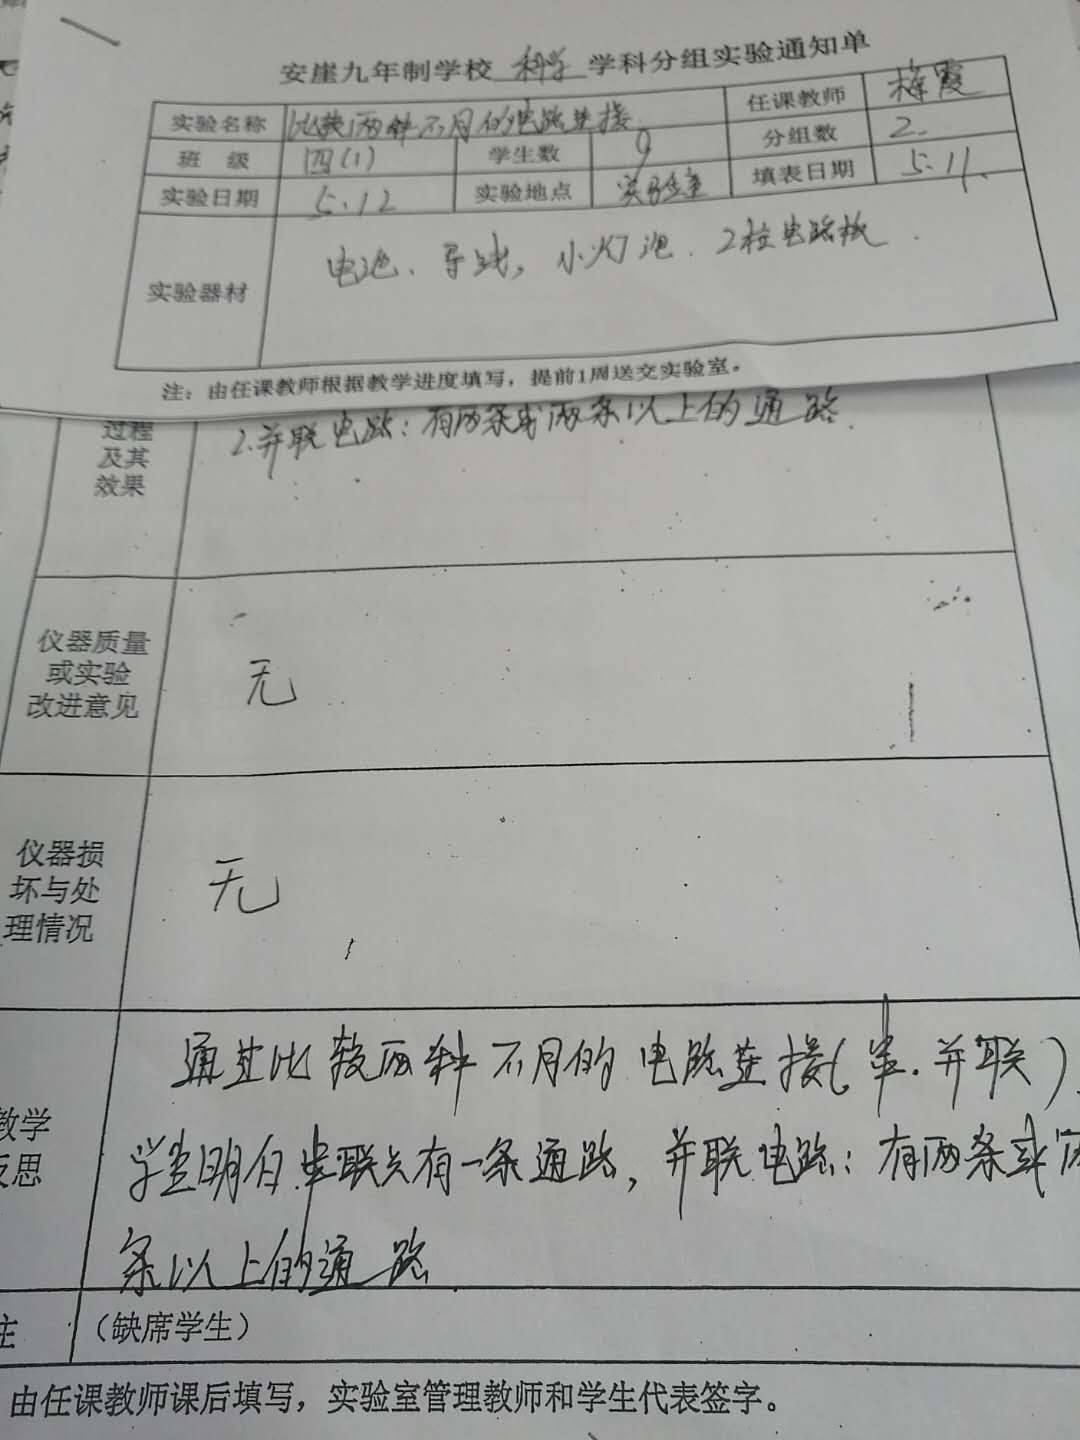 安崖九年制学校 科学 学科分组实验通知单
实验名称 比较两种不同的电路连接 任课教师 霞
班级 四(1) 学生数 9 分组数 2.
实验日期 5.12 实验地点 实验室 填表日期 5.11.
实验器材 电池、导线,小灯泡.2粒电路板.
注:由任课教师根据教学进度填写,提前1周送交实验室。
过程及其效果 2.并联电路:有两条或两条以上的通路.
仪器质量或实验改进意见 无
仪器损坏与处理情况 无
教学反思 通过比较两种不同的电路连接(串.并联)
学生明白串联只有一条通路,并联电路:有两条或两
条以上的通路
注 (缺席学生)
由任课教师课后填写,实验室管理教师和学生代表签字。